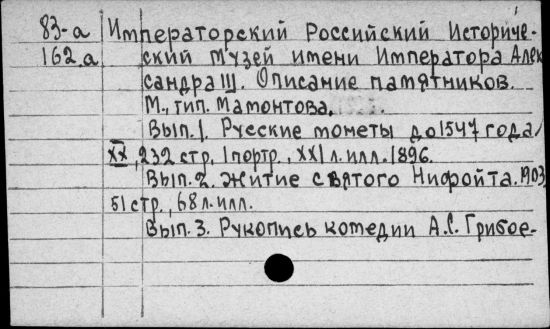 83-а Императорский Российский Историче-
162.а ский музей имени Императора Алек
сандра III. Описание памятников.
М., тип. Мамонтова.
Вып. 1. Русские монеты до 1547 года,
XX, 232 стр., 1 портр., XXI л. илл. 1896.
Вып. 2. Житие святого Нифонта. 1903
51 стр., 68 л. илл.
Вып. 3. Рукопись комедии А.С. Грибое-